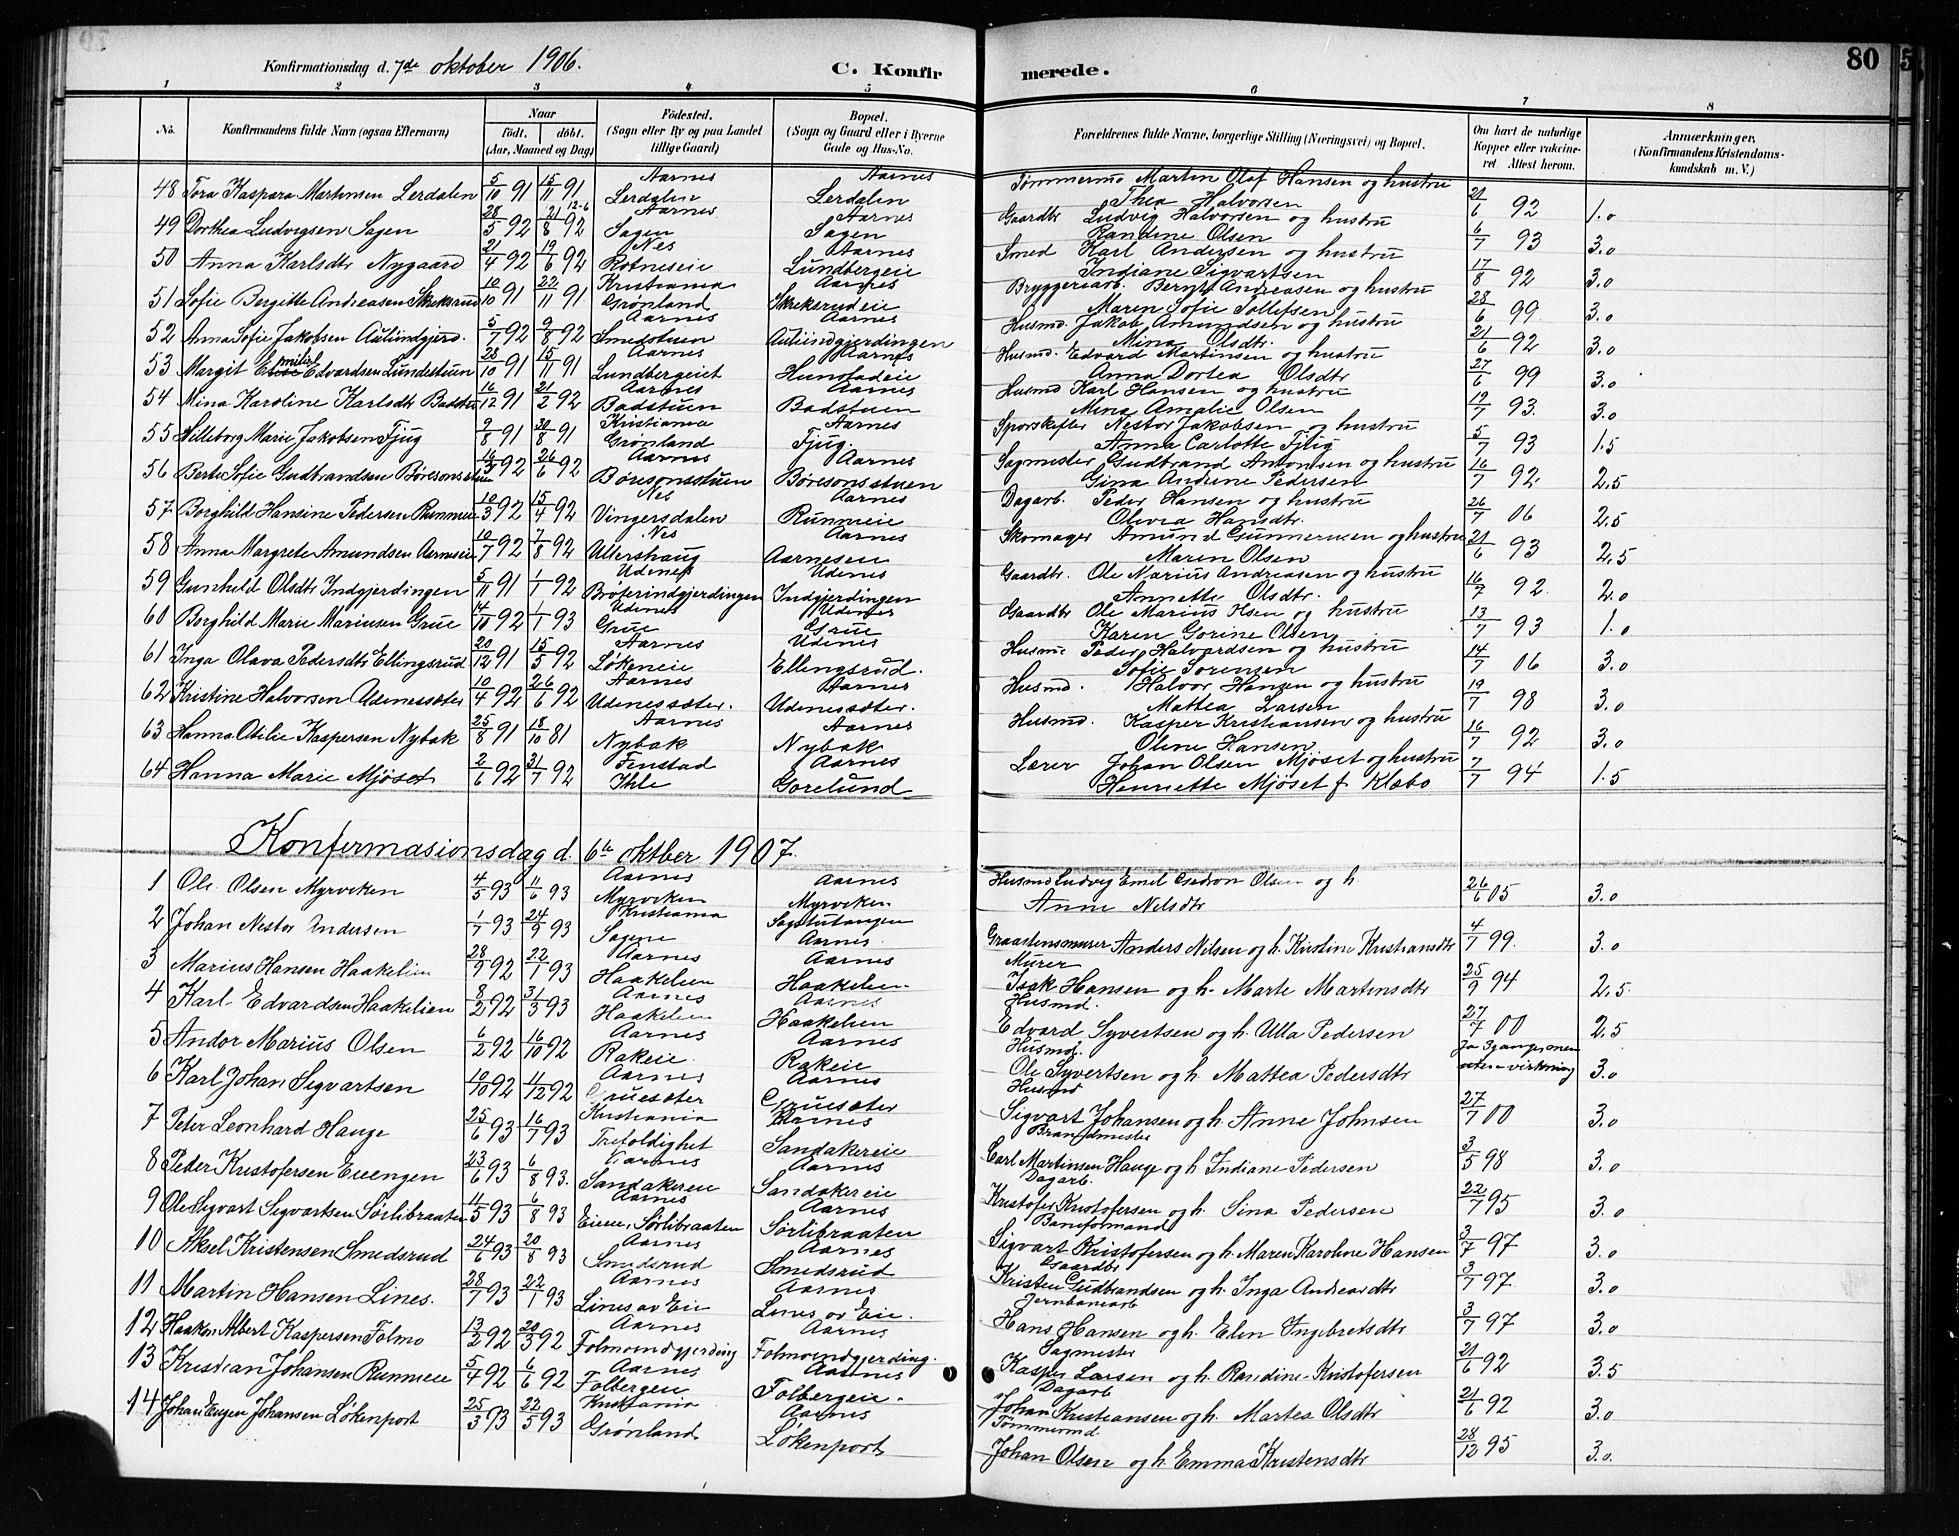 Konfirmationsdag d. 7de oktober 1906. C. Konfirmerede. 80
1 2 3 4 5 6 7 8
No. Konfirmandens fulde Navn (ogsaa Efternavn) Naar födt. döbt. (Aar, Maaned og Dag) Födested. (Sogn eller By og paa Landet tillige Gaard) Bopæl. (Sogn og Gaard eller i Byerne Gade og Hus-No. Forældrenes fulde Navne, borgerlige Stilling (Næringsvei) og Bopæl. Om havt de naturlige Kopper eller vaccineret Attest herom. Anmærkninger, (Konfirmandens Kristendomskundskab m. V.)
48 Tora Kaspara Martinsen Lerdalen 5/10 91 15/11 91 Aarnes Lerdalen Aarnes Lerdalen Tømmermd Martin Olaf Hansen og hustru Thea Halvorsen 21/6 92 1.0
49 Dorthea Ludvigsen Sagen 28/5 92 21/8 92 Aarnes Sagen Aarnes Sagen Gaardbr Ludvig Halvorsen og hustru Randine Olsen 6/7 93 3.0
50 Anna Karlsdtr Nygaard 21/4 92 19/6 92 Nes Rotneseie Aarnes Lundbergeie Smed Karl Andersen og hustru Indiane Sigvartsen 17/8 92 3.0
51 Sofie Bergitte Andreasen Skeksrud 10/10 91 22/11 91 Kristiania Grønland Aarnes Skeksrudeie Bryggeriarb. Bernt Andreasen og hustru Maren Sofie Tollefsen 28/6 99 3.0
52 Anna Sofie Jakobsen Aulundgjerd. 5/7 92 9/8 92 Aarnes Smedstuen Aarnes Aulundgjerdingen Husmd. Jakob Amundsen og hustru Mina Olsdtr. 21/6 92 3.0
53 Margit Emilie Edvardsen Lundestuen 28/10 91 15/11 91 Aarnes Lundbergeiet Aarnes Hunstadeie Husmd. Edvard Martinsen og hustru Anna Dortea Olsdtr 27/6 99 3.0
54 Mina Karoline Karlsdtr Badstu 16/12 91 21/2 92 Aarnes Badstuen Aarnes Badstuen Husmd Karl Hansen og hustru Mina Amalie Olsen 19/7 93. 3.0
55 Hilleborg Marie Jakobsen Fjug 9/8 91 30/8 91 Kristiania Grønland Aarnes Fjug. Sporskifter Nestor Jakobsen og hustru Anna Carlotte Fjug 5/7 93 1.5
56 Berte Sofie Gudbrandsen Børesonsstuen 16/5 92 26/6 92 Aarnes Børesonsstuen Aarnes Børesonsstuen Sagmester Gudbrand Antonsen og hustru Gina Andrine Pedersen 16/7 92. 2.5
57. Borghild Hansine Pedersen Runmeie 10/3 92 15/4 92 Nes Vingersdalen Aarnes Runmeie Dagarb. Peder Hansen og hustru Olivia Hansdtr. 26/7 06 2.5
58 Anna Margrete Amundsen Aarneseie 10/7 92 7/8 92 Nes Ullershaug Aarnes Aarneseie Skomager Amund Gunnerusen og hustru Maren Olsen 21/6 93 2.5
59 Gunhild Olsdtr Indgjerdingen 5/11 91 1/1 92 Udenes Brøterindgjerdingen Udenes Indgjerdingen Gaardbr. Ole Narius Andreasen og hustru Annette Olsdtr. 16/7 92. 2.0
60 Borghild Marie Mariusen Grue 14/10 92 1/1 93 Udenes Grue Udenes Grue Gaardbr Ole Marius Olsen og hustru Karen Gorine Olsen 13/7 93 1.0
61 Inga Olava Pedersdtr Ellingsrud 20/12 91 15/5 92 Aarnes Løkeneie Udenes Ellingsrud. Husmd Peder Halvordsen og hustru Sofie Sorensen 14/7 06 3.0
62 Kristine Halvorsen Udenessæter 10/4 92 26/6 92 Aarnes Udenessæter. Aarnes Udenessæter. Husmd. Halvor Hansen og hustru Mattea Larsen 19/7 98 3.0
63 Hanna Otilie Kaspersen Nybak 25/8 91 18/10 81 Aarnes Nybak Aarnes Nybak Husmd. Kasper Kristiansen og hustru Oline Hansen 16/7 92 3.0
64 Hanna Marie Mjøset 2/6 92 31/7 92 Finstad Ihle Aarnes Gorelund Lærer Johan Olsen Mjøset og hustru Henriette Mjøset f Klæbo 7/7 94 1.5
Konfermasionsdag d. 6te oktber 1907.
1 Ole Olsen Myrviken 4/5 93 11/6 93 Aarnes Myrviken Aarnes Myrviken Husmd Ludvig Emil Olsen og h. Anne Nelsdtr 26/6 05 3.0
2 Johan Nestor Andersen 1/7 93 24/9 93 Kristiania Sagene Sagstutangen Aarnes Graastensmurer Anders Nilsen og h. Kristine Kristiansdtr 4/7 99. 3.0
3 Marius Hansen Haakelien 28/9 92 22/1 93 Aarnes Haakelien Aarnes Haakelien Murer Isak Hansen og h. Marte Martinsdtr 25/9 94 2.5.
4 Karl Edvardsen Haakelien 8/2 92 31/3 93 Aarnes Haakelien Aarnes Haakelien Husmd. Edvard Syvertsen og h. Ulla Pedersen 27/7 00 2.5
5 Andor Marius Olsen 6/2 92 16/10 92 Aarnes Rakeie Aarnes Rakeie Husmd. Ole Syvertsen og h. Mattea Pedersdtr Ja 3 ganger men uten virkning 3.0
6 Karl Johan Sigvartsen 10/10 92 11/12 92 Aarnes Gruesæter Aarnes Gruesæter Husmd Sigvart Johansen og h. Anne Johnsen 27/7 00 3.0
7 Peter Leonhard Hauge 25/6 93 16/7 93 Kristiania Trefoldighet Aarnes Sandakereie Brandmester Carl Martinsen Hauge og h. Indiane Pedersen 3/5 98 3.0
8 Peder Kristofersen Eieengen 23/6 93 6/8 93. Aarnes Sandakereie Aarnes Sandakereie Dagarb. Kristofer Kristofersen og h. Sina Pedersen 22/7 95 3.0
9 Ole Sigvart Sigvartsen Sørlibraaten 11/5 93 6/8 93 Aarnes Eiene, Sørlibraaten Aarnes Sørlibraaten Baneformand Sigvart Kristofersen og h. Maren Karoline Hansen 3/7 97 3.0
10 Aksel Kristensen Smedsrud 24/6 93 20/8 93 Aarnes Smedsrud Aarnes Smedsrud Gaardbr Kristen Gudbrandsen og h. Inga Andreasdtr 3/7 97. 3.0
11 Martin Hansen Lines. 28/7 93 22/1 93 Aarnes Lines av Eie Aarnes Lines av Eie. Jernbanearb Hans Hansen og h. Elen Ingebretsdtr 3/7 97 3.0
12 Haakon Albert Kaspersen Folmo 13/2 92 20/3 92 Aarnes Folmoindgjerding Aarnes Folmoindgjerding. Sagmester Kasper Larsen og h. Randine Kristofersen 21/6 92 3.5
13 Kristian Johansen Runmeie 5/4 92 6/6 92 Aarnes Folbergeie Aarnes Folbergeie. Dagarb Johan Kristiansen og h. Martea Olsdtr 21/6 92 3.0
14 Johan Eugen Johansen Løkenport 25/3 93 22/5 93 Kristiania Grønland Aarnes Løkenport Tømmermd Johan Olsen og h. Emma Kristensdtr 28/12 95 3.0.